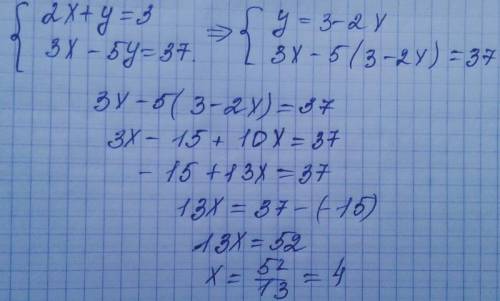 { 2x+y=3 ⇒ { y=3-2x
{ 3x-5y=37. { 3x-5(3-2x)=37
3x-5(3-2x)=37
3x-15+10x=37
-15+13x=37
13x=37-(-15)
13x=52
x=52/13=4